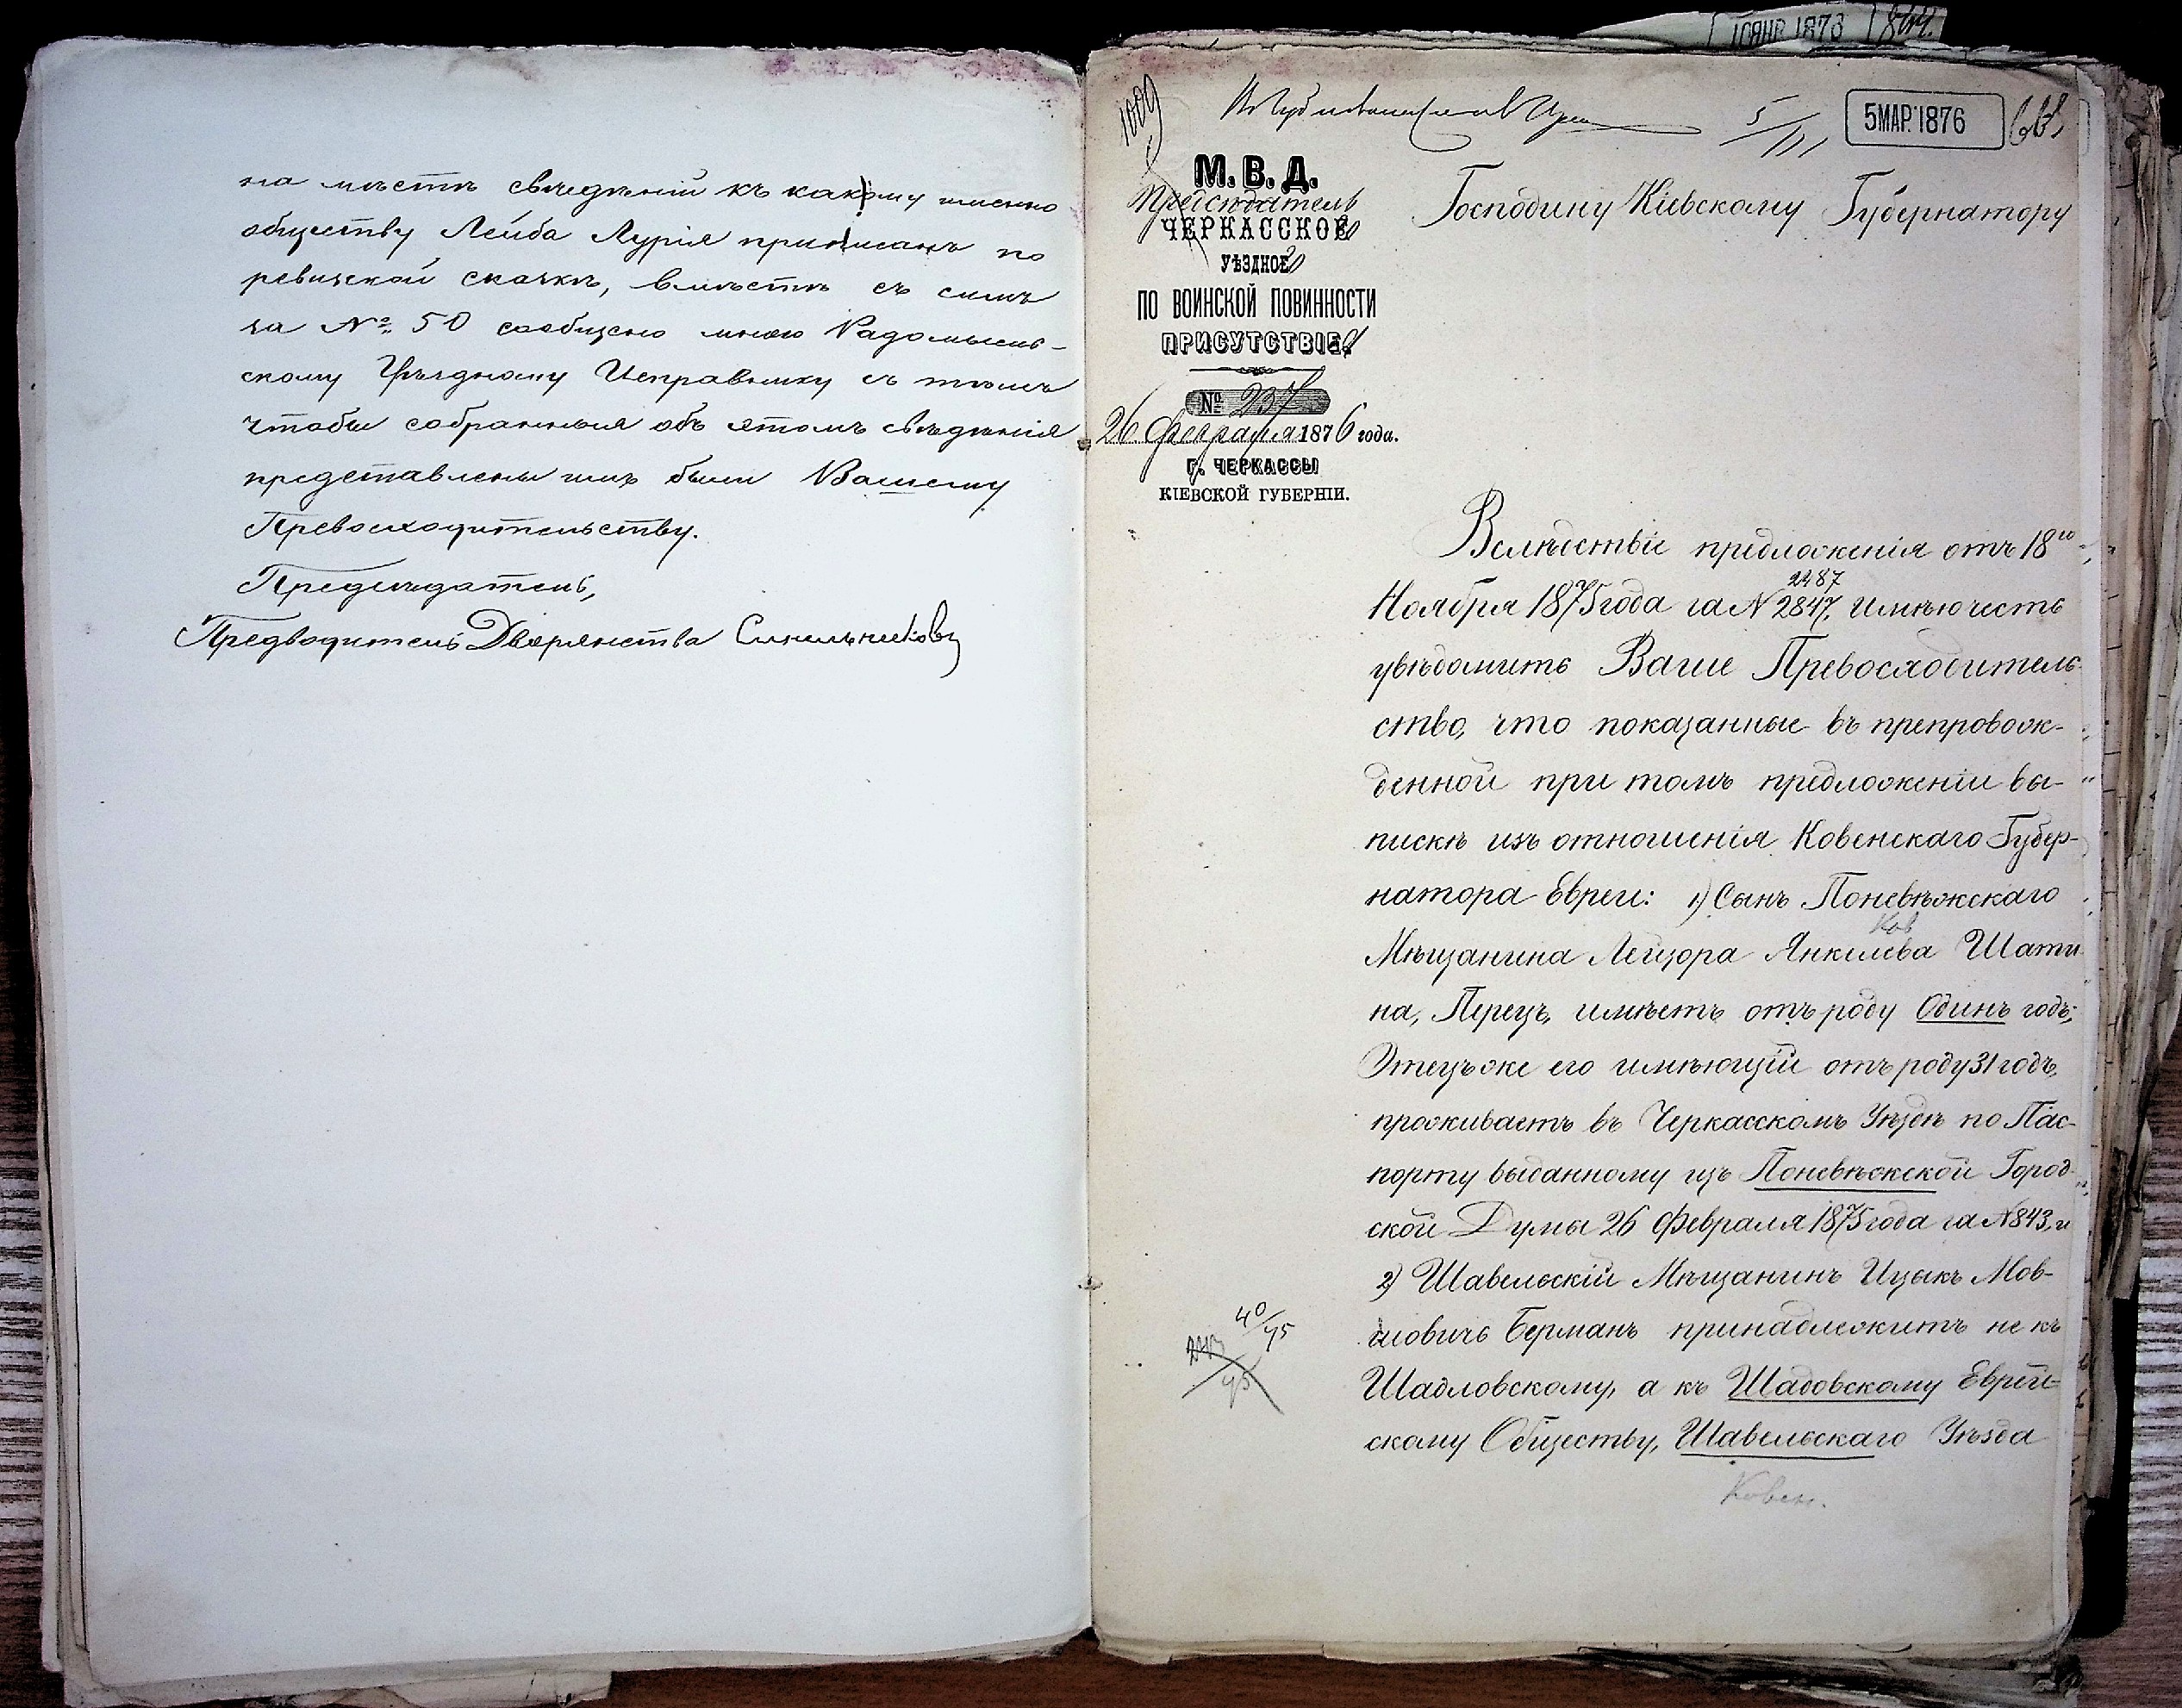 на мѣстѣ свѣдѣній къ какому именно
обществу Лейба Лурія приписанъ по
ревизской сказкѣ, вмѣстѣ съ симъ
за № 50 сообщено мною Радомысль-
скому Уѣздному Исправнику съ тѣмъ
чтобы собранныя объ этомъ свѣдѣнія
представлены имъ были Вашему
Превосходительству.
Предсѣдатель,
Предводитель Дворянства Синельниковъ
10 ЯНВ 1876
1009
5/III
5 МАР. 1876
М. В. Д.
Предсѣдатель
ЧЕРКАССКОЕ
УѢЗДНОЕ
ПО ВОИНСКОЙ ПОВИННОСТИ
ПРИСУТСТВІЕ
№ 237
26 Февраля 1876 года.
Г. ЧЕРКАССЫ
КІЕВСКОЙ ГУБЕРНІИ.
Господину Кіевскому Губернатору
Вслѣдствіе предложенія отъ 18го
2287
Ноября 1875 года за № 2847, имѣю честь
увѣдомить Ваше Превосходитель-
ство, что показанные въ препровож-
денной при томъ предложеніи вы-
пискѣ изъ отношенія Ковенскаго Губер-
натора Евреи: 1) Сынъ Поневѣжскаго
Ков
Мѣщанина Лейзора Янкилева Шати-
на, Перецъ, имѣетъ отъ роду Одинъ годъ;
Отецъ же его имѣющій отъ роду 31 годъ,
проживаетъ въ Черкасскомъ Уѣздѣ по Пас-
порту выданному изъ Поневѣжской Город-
ской Думы 26 Февраля 1875 года за № 843, и
2) Шавельскій Мѣщанинъ Ицыкъ Мов-
шовичъ Берманъ принадлежитъ не къ
Шадловскому, а къ Шадовскому Еврей-
скому Обществу, Шавельскаго Уѣзда
Ковен.
40/75